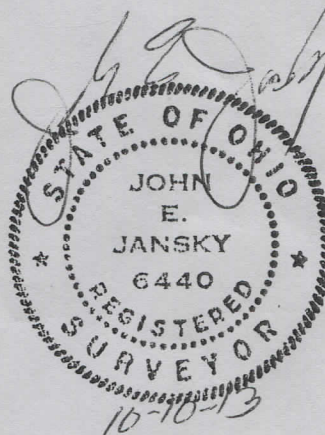 STATE OF OHIO
JOHN
E.
JANSKY
6440
REGISTERED
SURVEYOR
10-10-13